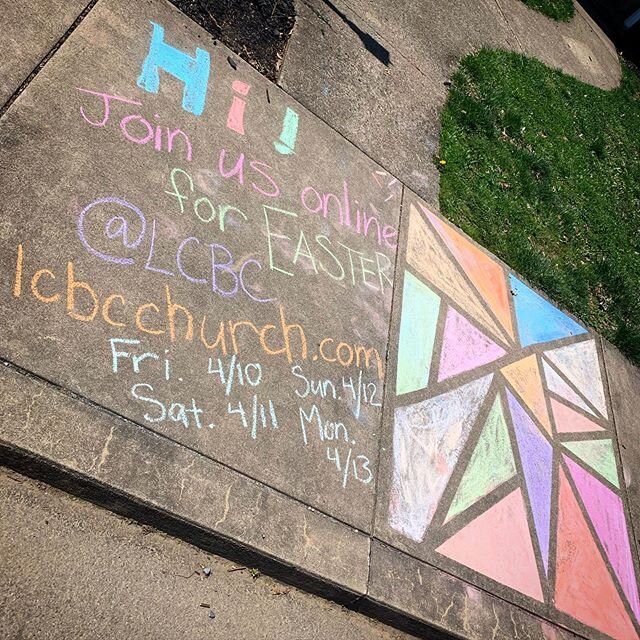 Hi!
Join us online
for EASTER
@LCBC
lcbcchurch.com
Fri. 4/10 Sun. 4/12
Sat. 4/11 Mon.
4/13